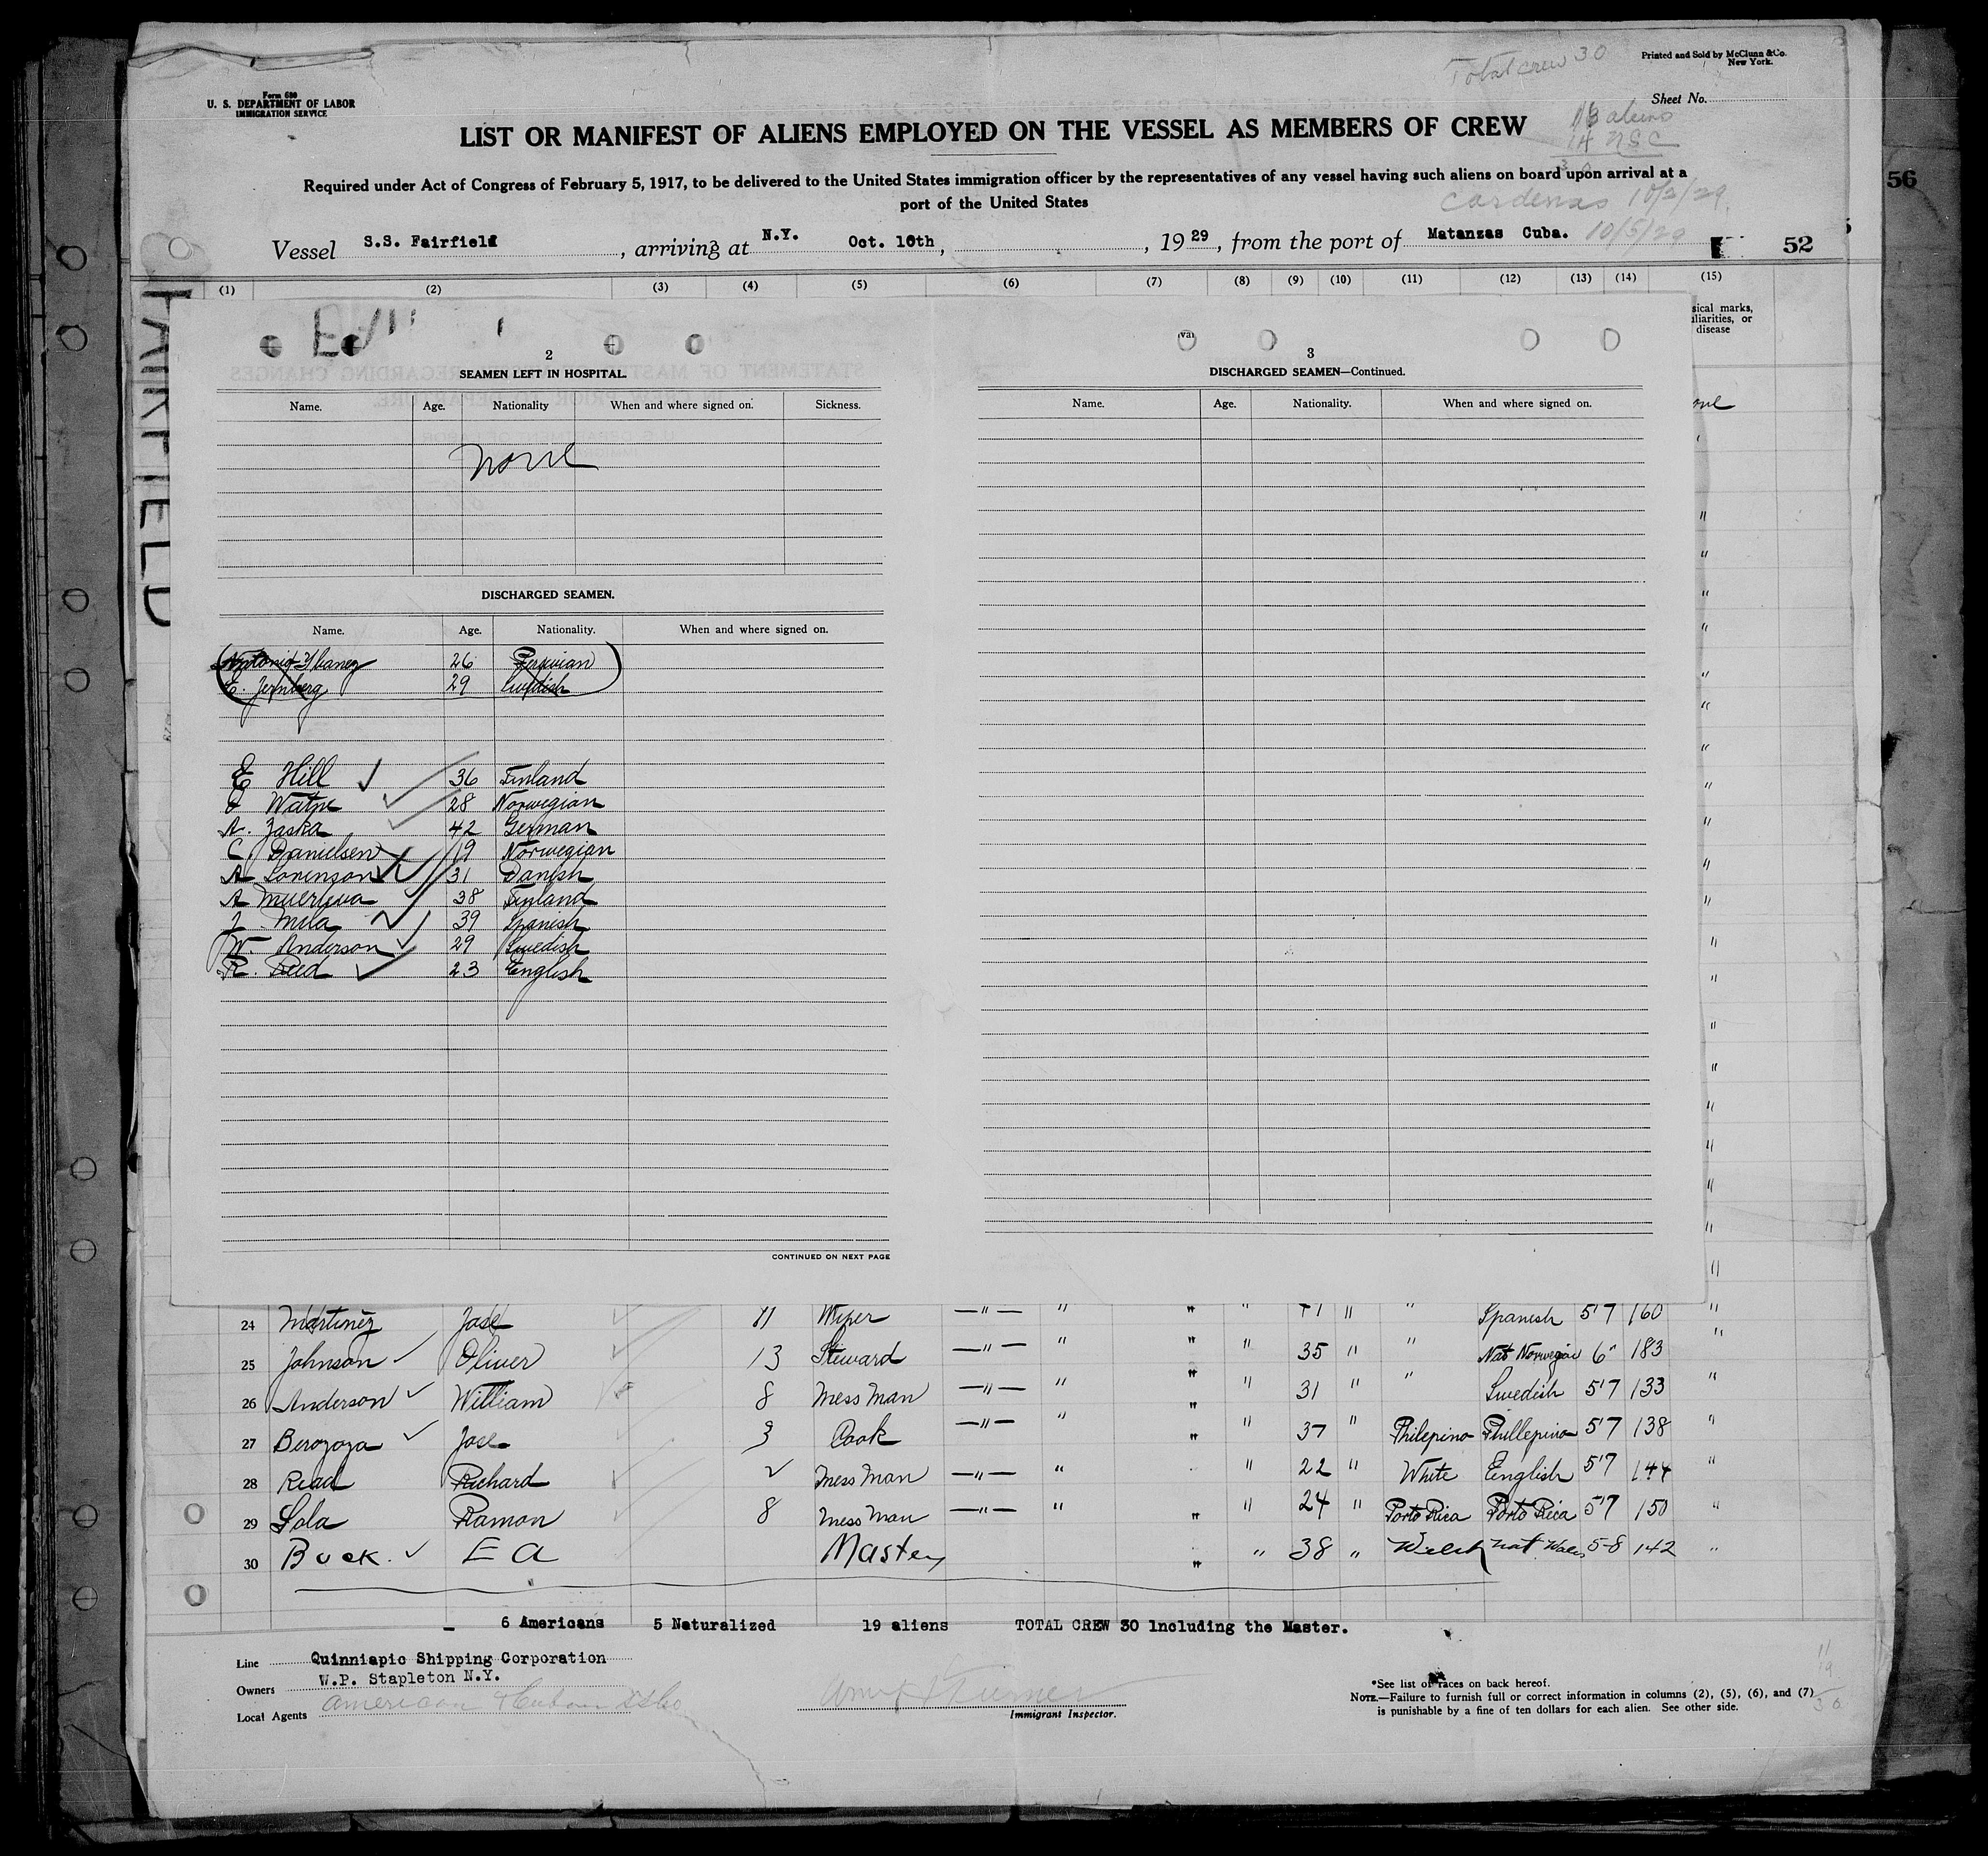 Total crew 30
Printed and Sold by McClunn & Co.
New York.
Form 680
U. S. DEPARTMENT OF LABOR
IMMIGRATION SERVICE
Sheet No.
LIST OR MANIFEST OF ALIENS EMPLOYED ON THE VESSEL AS MEMBERS OF CREW
16 aliens
14 USC
30
Required under Act of Congress of February 5, 1917, to be delivered to the United States immigration officer by the representatives of any vessel having such aliens on board upon arrival at a
port of the United States
56
Cardenas 10/2/29.
Vessel S.S. Fairfield, arriving at N.Y. Oct. 10th, , 1929, from the port of Matanzas Cuba. 10/5/29
52
(1) (2) (3) (4) (5) (6) (7) (8) (9) (10) (11) (12) (13) (14) (15)
sical marks,
liarities, or
disease
FAIRFIELD
2
SEAMEN LEFT IN HOSPITAL.
Name. Age. Nationality When and where signed on. Sickness.
none
DISCHARGED SEAMEN.
Name. Age. Nationality. When and where signed on.
Antonio Ybanez 26 Peruvian
E. Jernberg 29 Swedish
E Hill 36 Finland
Watne 28 Norwegian
A. Zaska 42 German
C. Danielsen 19 Norwegian
A Sorenson 31 Danish
A 38 Finland
J Mila 39 Spanish
W Anderson 29 Swedish
R. Reed 23 English
CONTINUED ON NEXT PAGE
3
DISCHARGED SEAMEN—Continued.
Name. Age. Nationality. When and where signed on.
24 Martinez Jose 11 Wiper —"— " " " 41 " " Spanish 5'7 160 "
25 Johnson Oliver 13 Steward —"— " " " 35 " " Nat Norwegian 6" 183 "
26 Anderson William 8 Mess Man —"— " " " 31 " " Swedish 5'7 133 "
27 Berozoza Jose 3 Cook —"— " " " 37 " Philepino Phillepino 5'7 138 "
28 Read Richard 2 Mess Man —"— " " 22 " White English 5'7 144 "
29 Sola Ramon 8 Mess Man —"— " " " 24 " Porto Rica Porto Rica 5'7 150 "
30 Buck. E A Master " " 38 " Welsh nat Wales 5-8 142 "
6 Americans 5 Naturalized 19 aliens TOTAL CREW 30 Including the Master.
Line Quinniapic Shipping Corporation
Owners W.P. Stapleton N.Y.
Local Agents American & Cuban SS Co
Immigrant Inspector.
*See list of races on back hereof.
NOTE.—Failure to furnish full or correct information in columns (2), (5), (6), and (7)
is punishable by a fine of ten dollars for each alien. See other side.
11
19
30